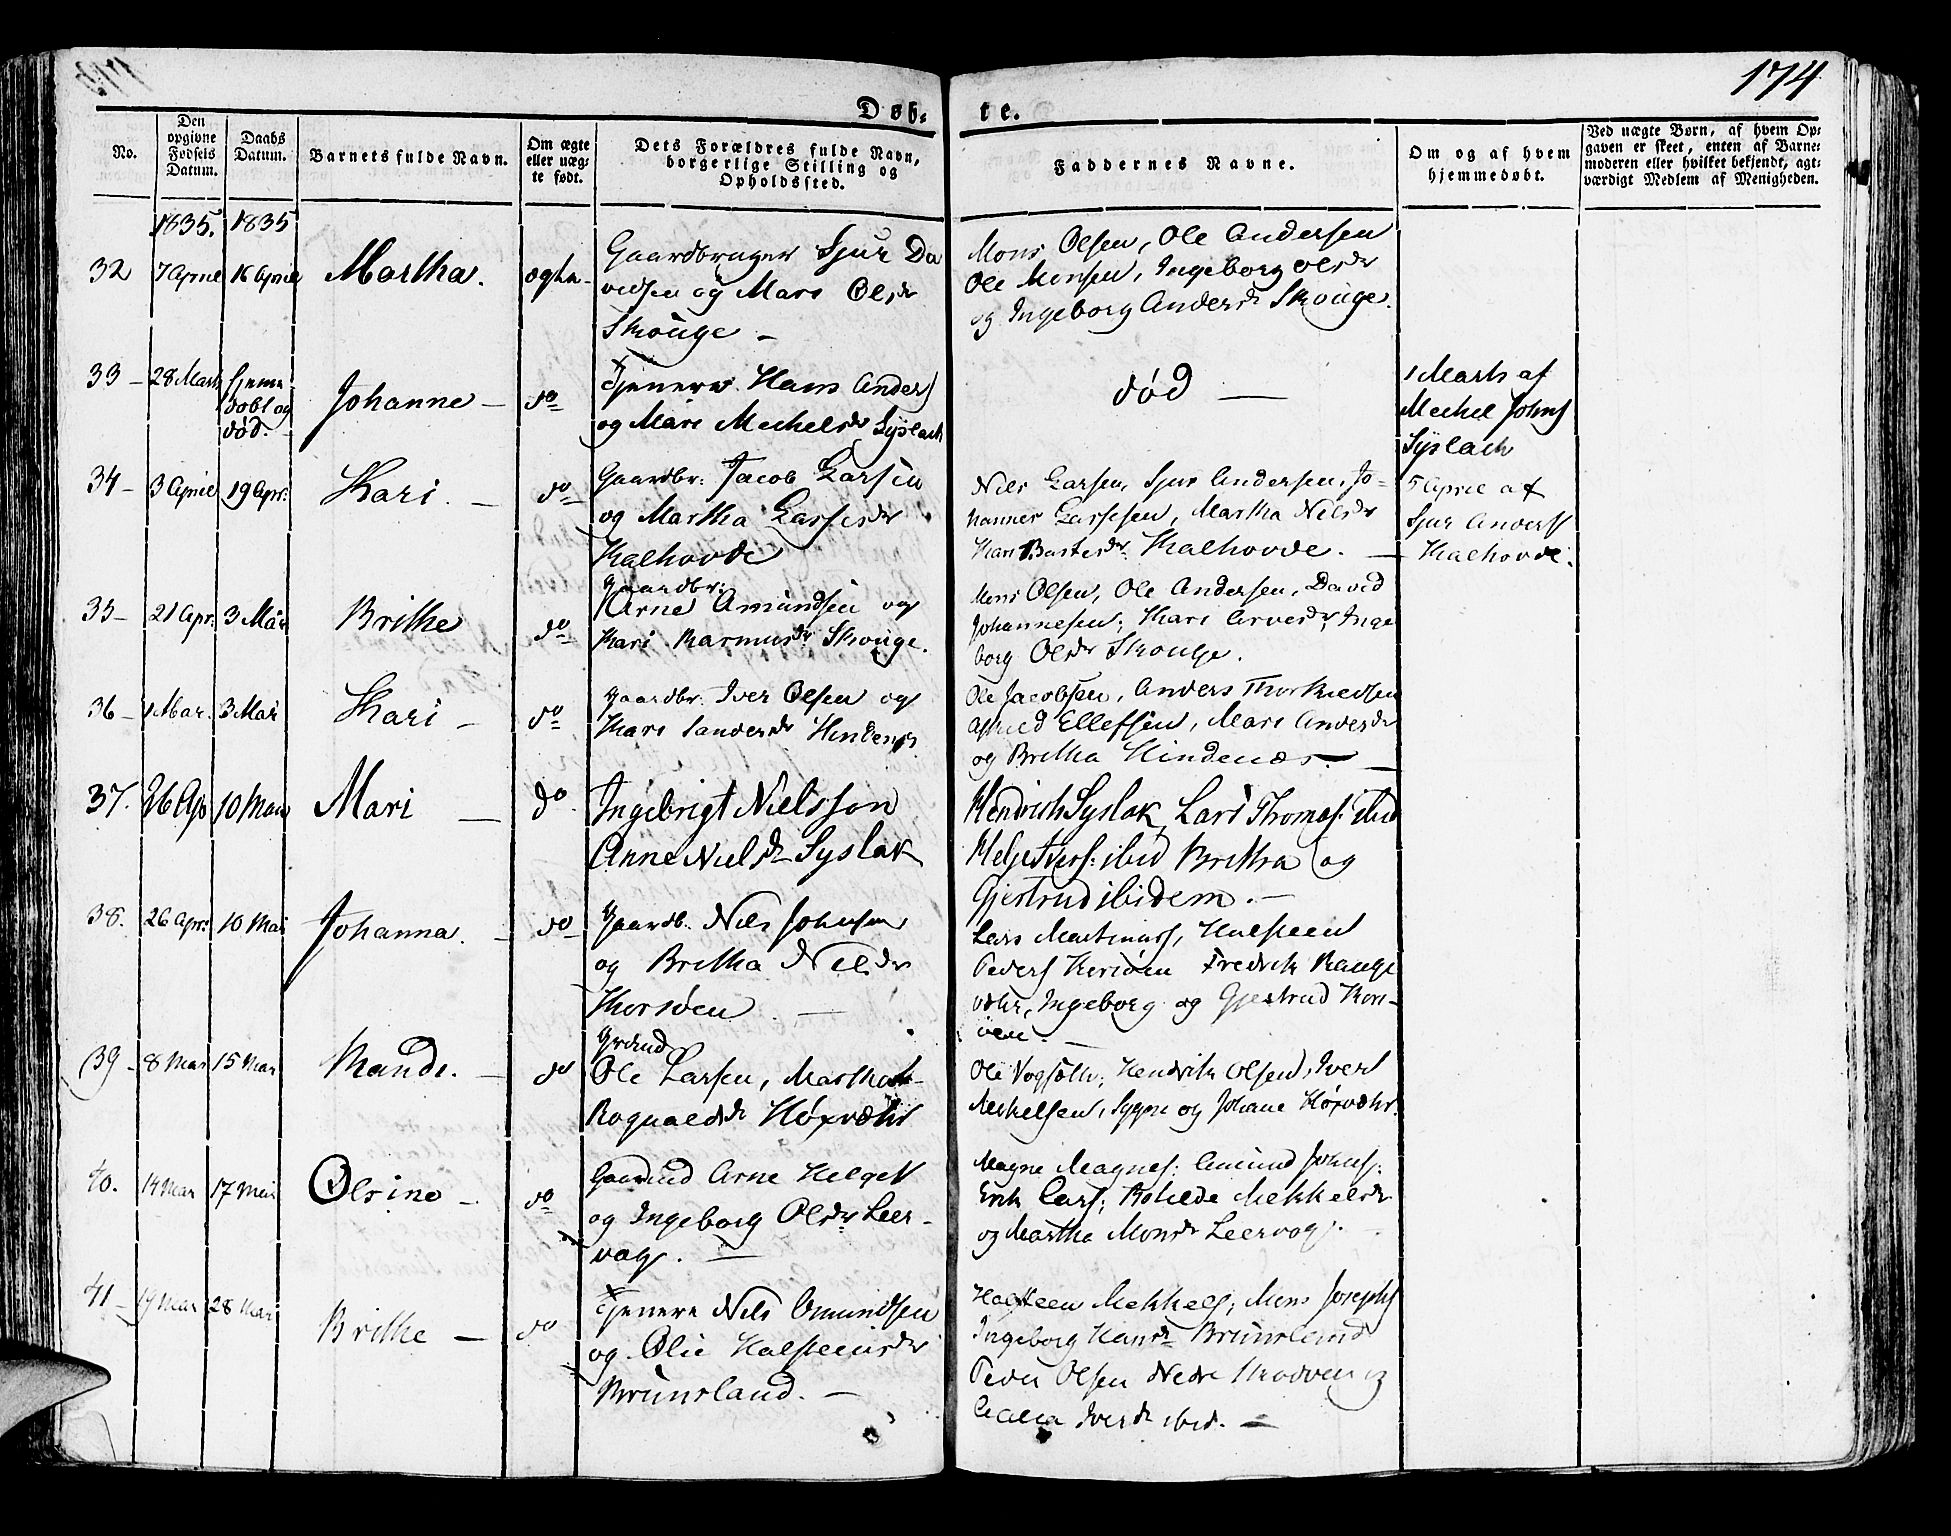 174
Døb-
te.
No.
Den opgivne Fødsels Datum.
Daabs Datum.
Barnets fulde Navn.
Om ægte eller uæg-te født.
Dets Forældres fulde Navn, borgerlige Stilling og Opholdssted.
Faddernes Navne.
Om og af hvem hjemmedøbt.
Ved uægte Børn, af hvem Op-gaven er skeet, enten af Barne-moderen eller hvilket bekjendt, agt-værdigt Medlem af Menigheden.
1835. 1835
32 7 April 16 April Martha. ægte
Gaardbruger Sjur Da
vidsen og Mari Olsdr
Skouge –
Mons Olsen, Ole Andersen
Ole Monsen, Ingeborg Olsdr
og Ingeborg Andersdr Skouge.
33 – 28 Marts hjeme
døbt og
død. Johanne – do
Tjenere Hans Anders
og Mari Mechelsdr Syslach
død –
1 Marts af
Mechel Johns
Syslach
34 – 3 April 19 Apr: Kari. – do
Gaardbr: Jacob Larsen
og Martha Larsesdr
Kalhovde
Nils Larsen, Sjur Andersen, Jo-
hannes Larsesen, Martha Nilsdr
Kari Kalhovde. –
5 April af
Sjur Anders
Kalhovde.
35 – 21 Apr: 3 Mai Brithe do
Gaardbr:
Arne Amundsen og
Kari Rasmusdr Skouge.
Mons Olsen, Ole Andersen, David
Johannesen, Kari Arnesdr, Inge
borg Olsdr Skouge.
36 – 1 Mai. 3 Mai Kari – do
Gaardbr. Iver Olsen og
Kari Sandersdr
Ole Jacobsen, Anders
Ellefsen, Mari Andersdr
og Britha Hindenæs –
37. 26 Ap 10 Mai Mari – do
Ingebrigt Nielsson
Anne Nielsdr Syslak
Hendrich Syslak, Lars Thomas: ibid
ibid Britha og
Gjertrud ibidem. –
38. 26 Apr: 10 Mai Johanna. – do
Gaardb. Nils Johnsen
og Britha Nilsdr
Thorsøen –
Lars Martinus, Halsteen
Peders Fredrik
Ingeborg og Gjertrud Kors-
øen. –
39 – 8 Mai 15 Mai Mandi. – do
Ole Larsen, Martha
Rognaldsdr
Ole Hendrik Olsen, Iver
Mekelsen, Sygne og Johane
40. 14 Mai 17 Mai Olsine – do
Gaardmd Arne Helges
og Ingeborg Olsdr Leer-
vog. –
Magne Magnes: Amund Johns:
Erik Lars: Mekkelsdr
og Martha Monsdr Leervog.
41 – 19 Mai 28 Mai Brithe – do
Tjenere Nils Omundsen
og Olie Halsteensdr
Brunsland. –
Halsteen Mekkels, Mons Josephs
Ingeborg Hansdr Brunsland
Peder Olsen Nedre og
Iversdr ibid. –